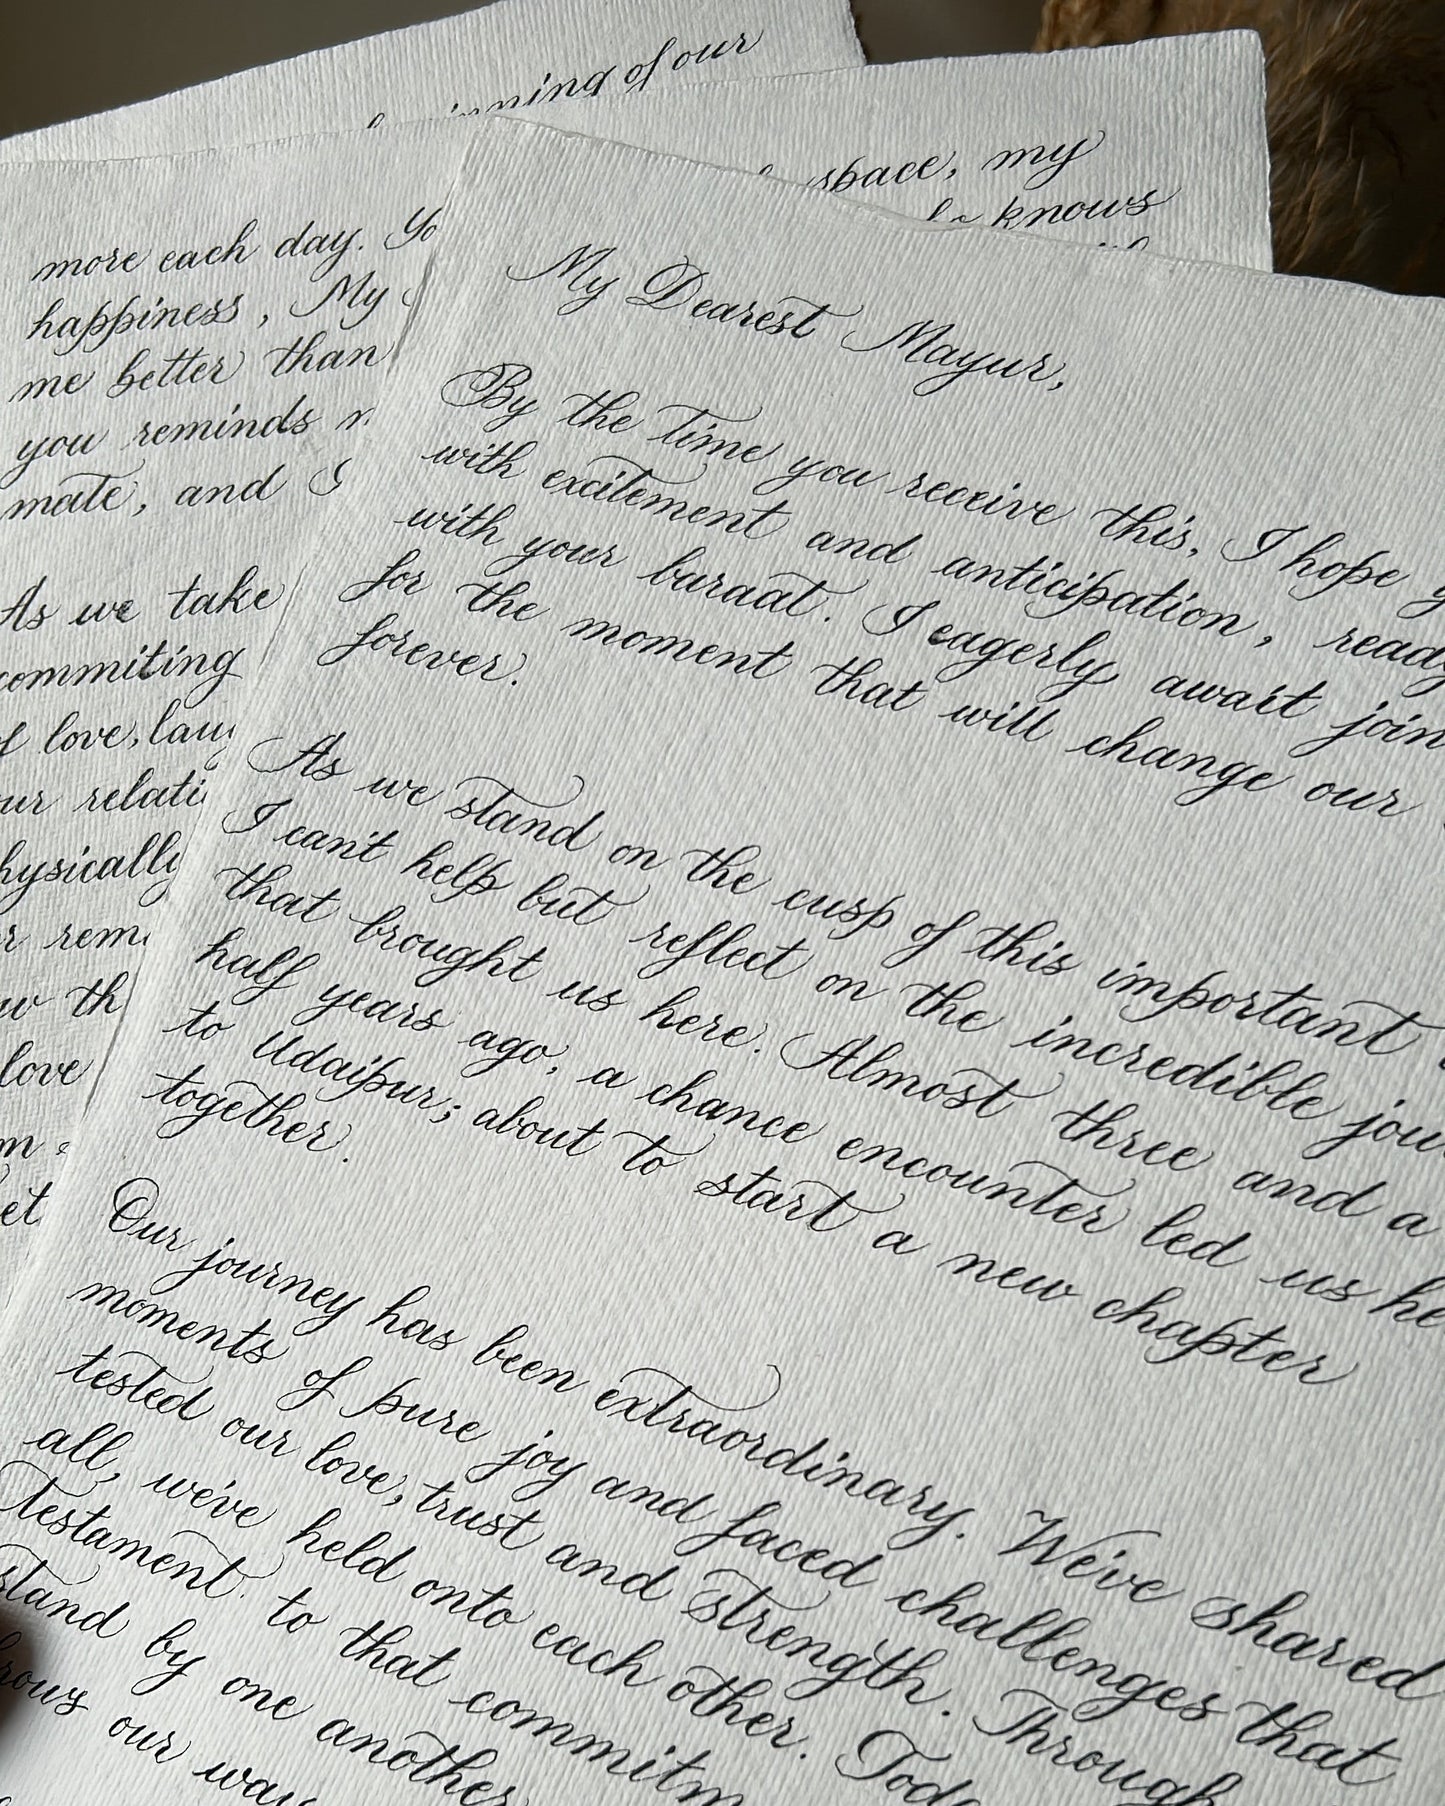 of our
space, my
knows
more each day.
happiness, My
me better than
you reminds
mate, and I
As we take
commiting
love,
our
physically
love
My Dearest Mayur,
By the time you receive this, I hope
with excitement and anticipation, ready
with your baraat. I eagerly await
for the moment that will change our
forever.
As we stand on the cusp of this important
I can't help but reflect on the incredible
that brought us here. Almost three and a
half years ago, a chance encounter led us
to Udaipur; about to start a new chapter
together.
Our journey has been extraordinary. We've shared
moments of pure joy and faced challenges that
tested our love, trust and strength. Through
all, we've held onto each other.
testament to that
stand by one another
our